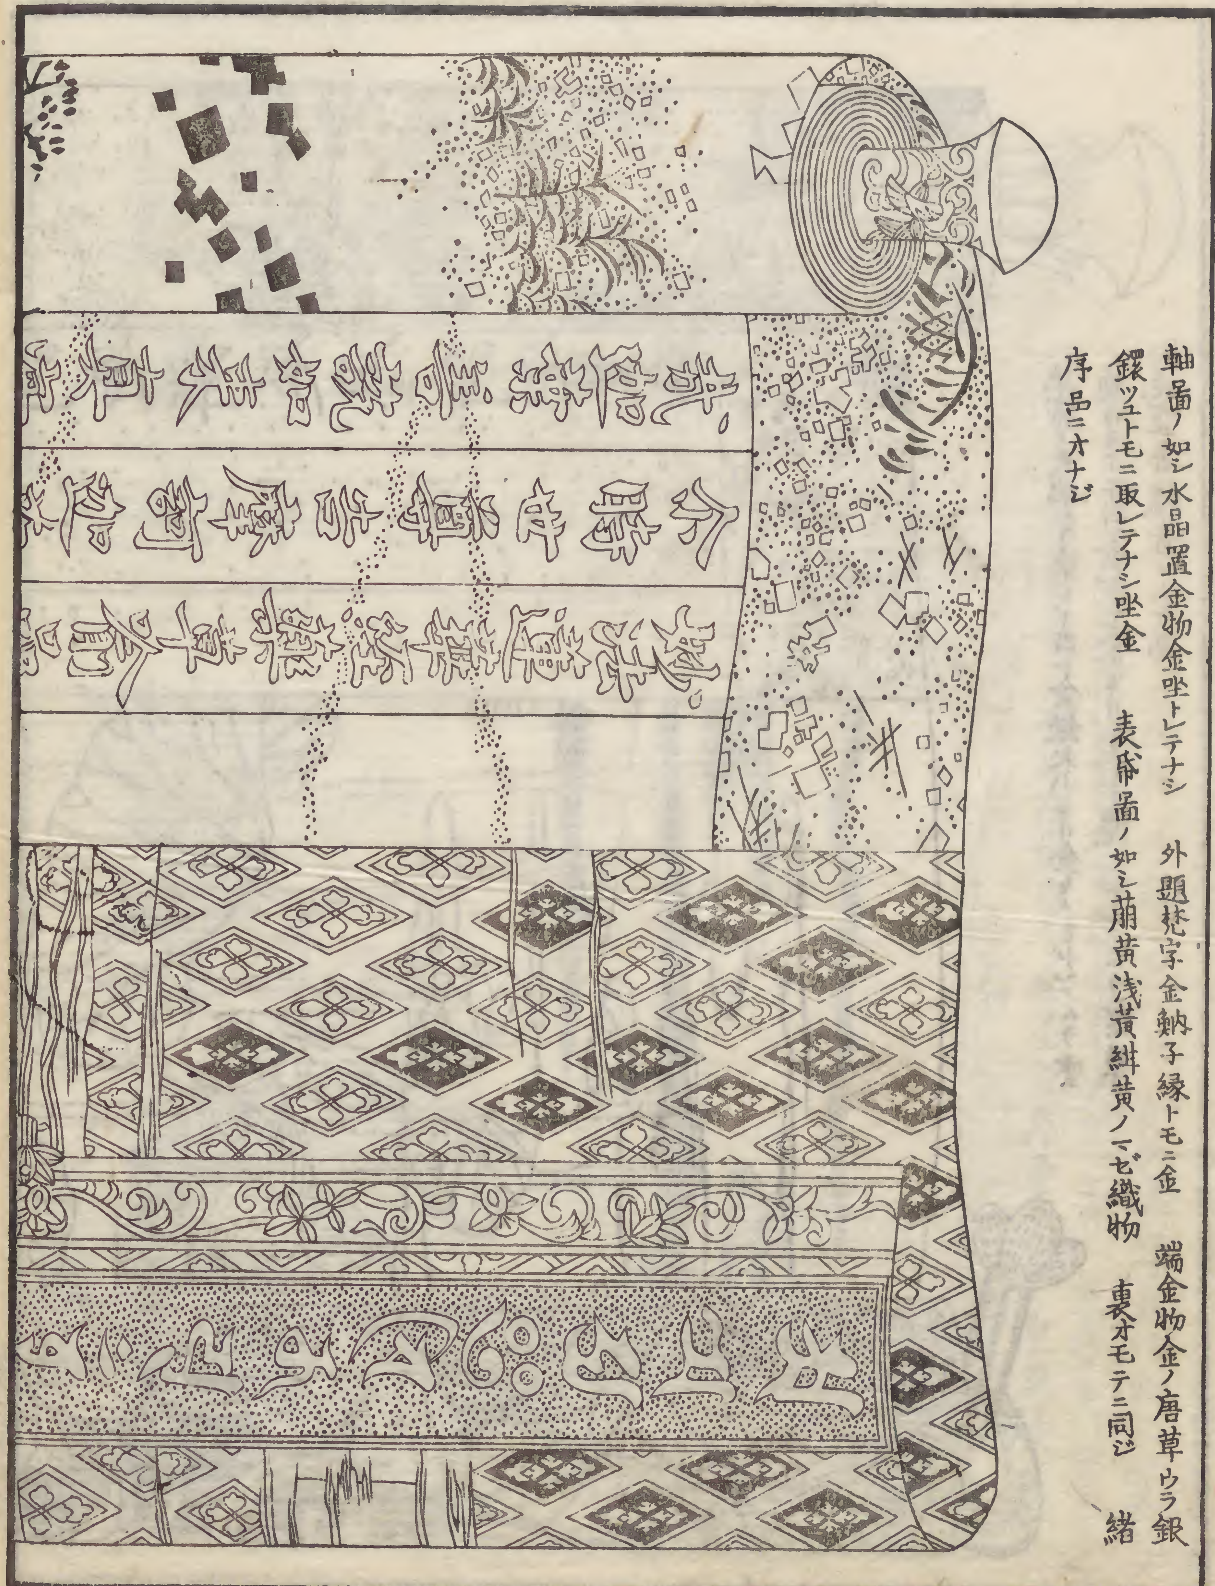 軸啚ノ如シ水晶置金物金坐トレテナシ　外題梵字金魶子縁トモニ金　端金物金ノ唐草ウラ銀
鐶ツユトモニ取レテナシ坐金　表帋啚ノ如シ萠黄浅黄緋黄ノマゼ織物　裏オモテニ同ジ　緒
序品ニオナジ
妙法蓮華經藥草喩品
尒時世尊告摩訶迦葉
哉迦葉善説如来真實